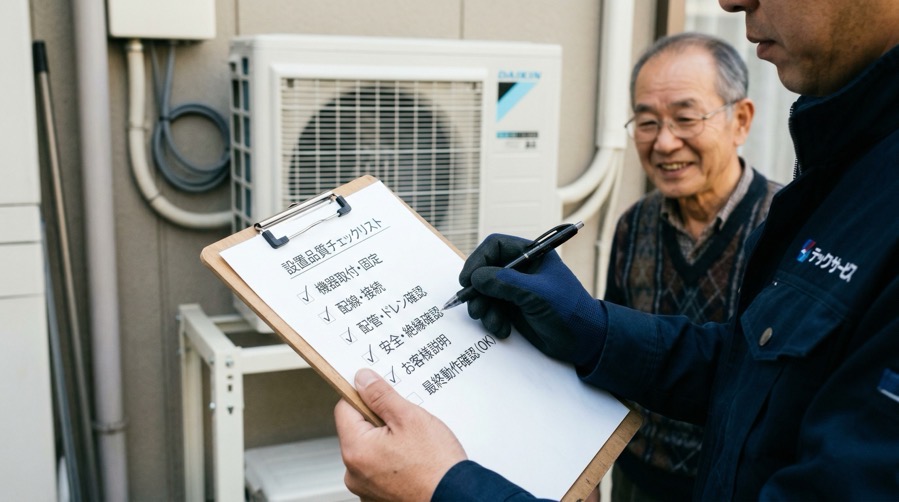 DAIKIN
設置品質チェックリスト
機器取付・固定
配線・接続
配管・ドレン確認
安全・絶縁確認
お客様説明
最終動作確認(OK)
テックサービス